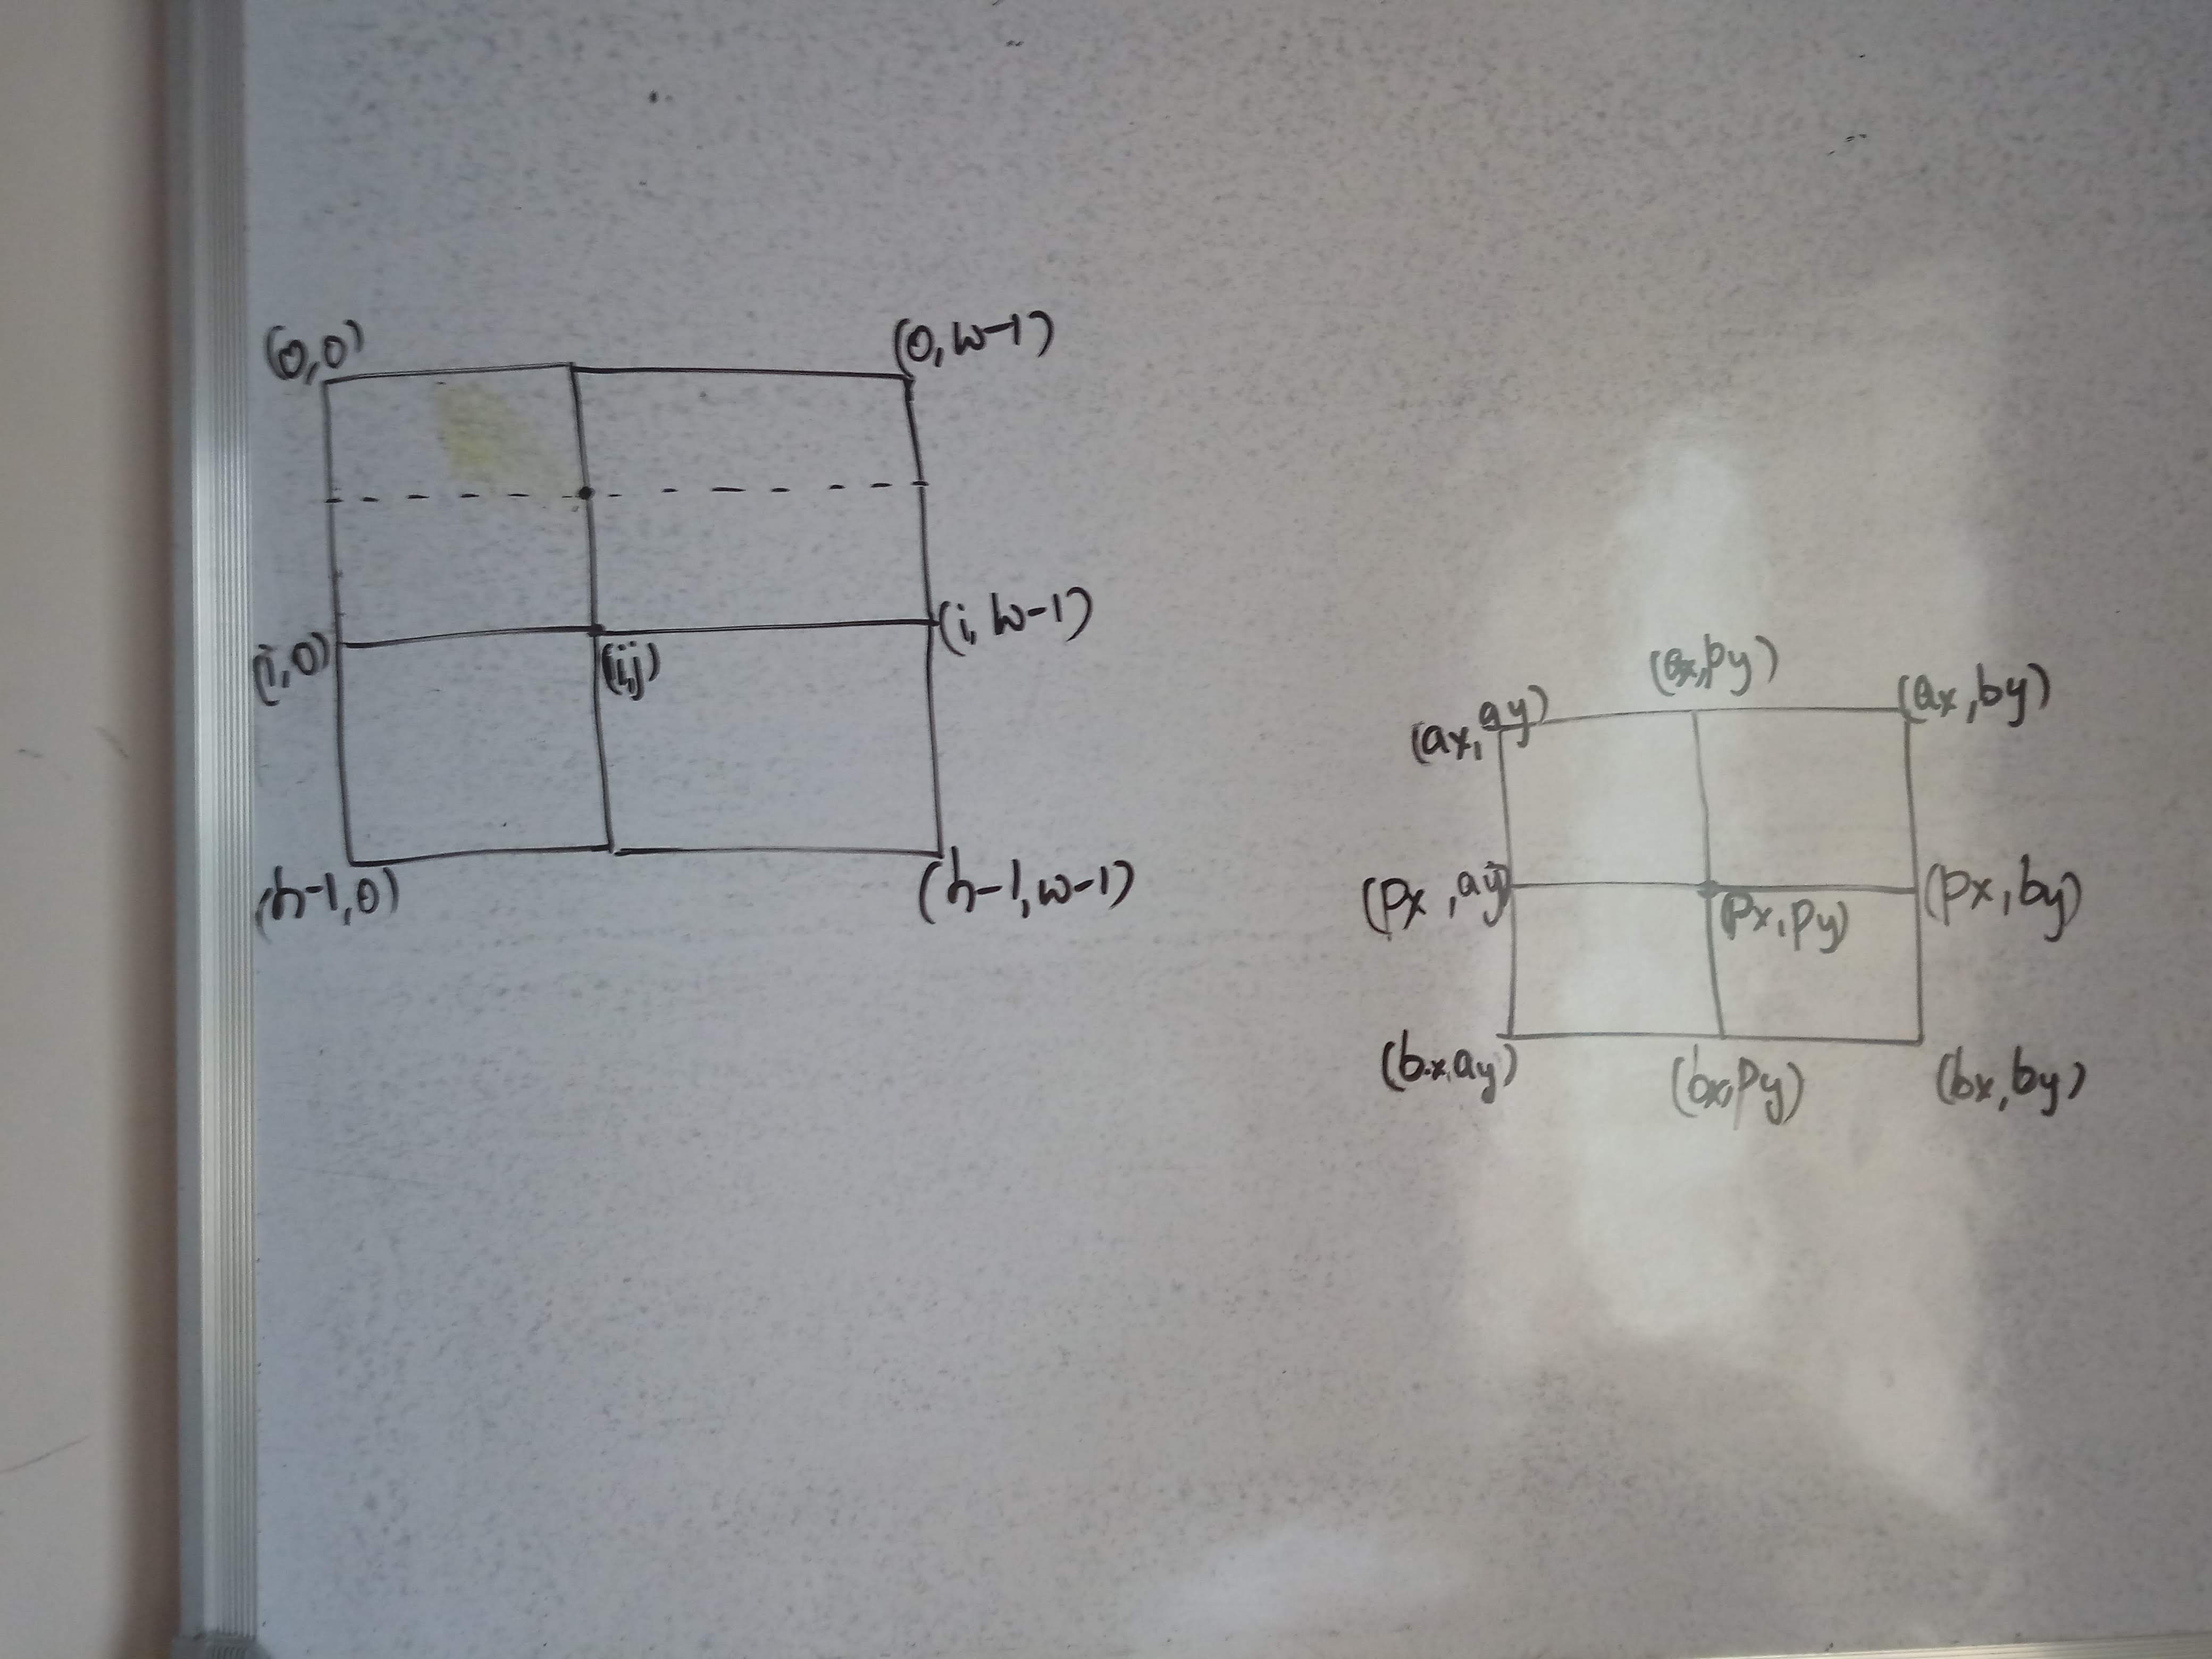 (0,0) (0,w-1)
(i,0) (i,j) (i,w-1)
(h-1,0) (h-1,w-1)
(ax,ay) (ax,py) (ax,by)
(px,ay) (px,py) (px,by)
(bx,ay) (bx,py) (bx,by)